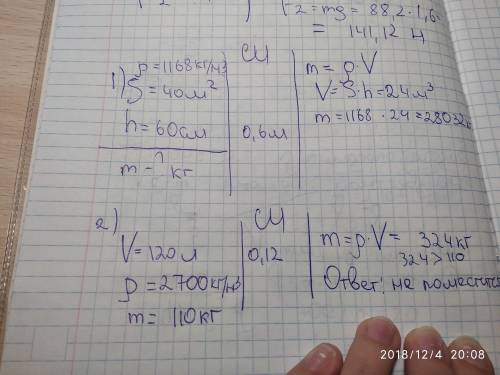 F₂ = mg = 88,2 · 1,6
= 141,12 Н
СИ
1) ρ = 1168 кг/м³
S = 40 м²
h = 60 см
0,6 м
m - ? кг
m = ρ · V
V = S · h = 24 м³
m = 1168 · 24 = 28032
2)
СИ
V = 120 л
0,12
ρ = 2700 кг/м³
m = 110 кг
m = ρ · V = 324 кг
324 > 110
Ответ: не поместится
2018/12/4 20:08